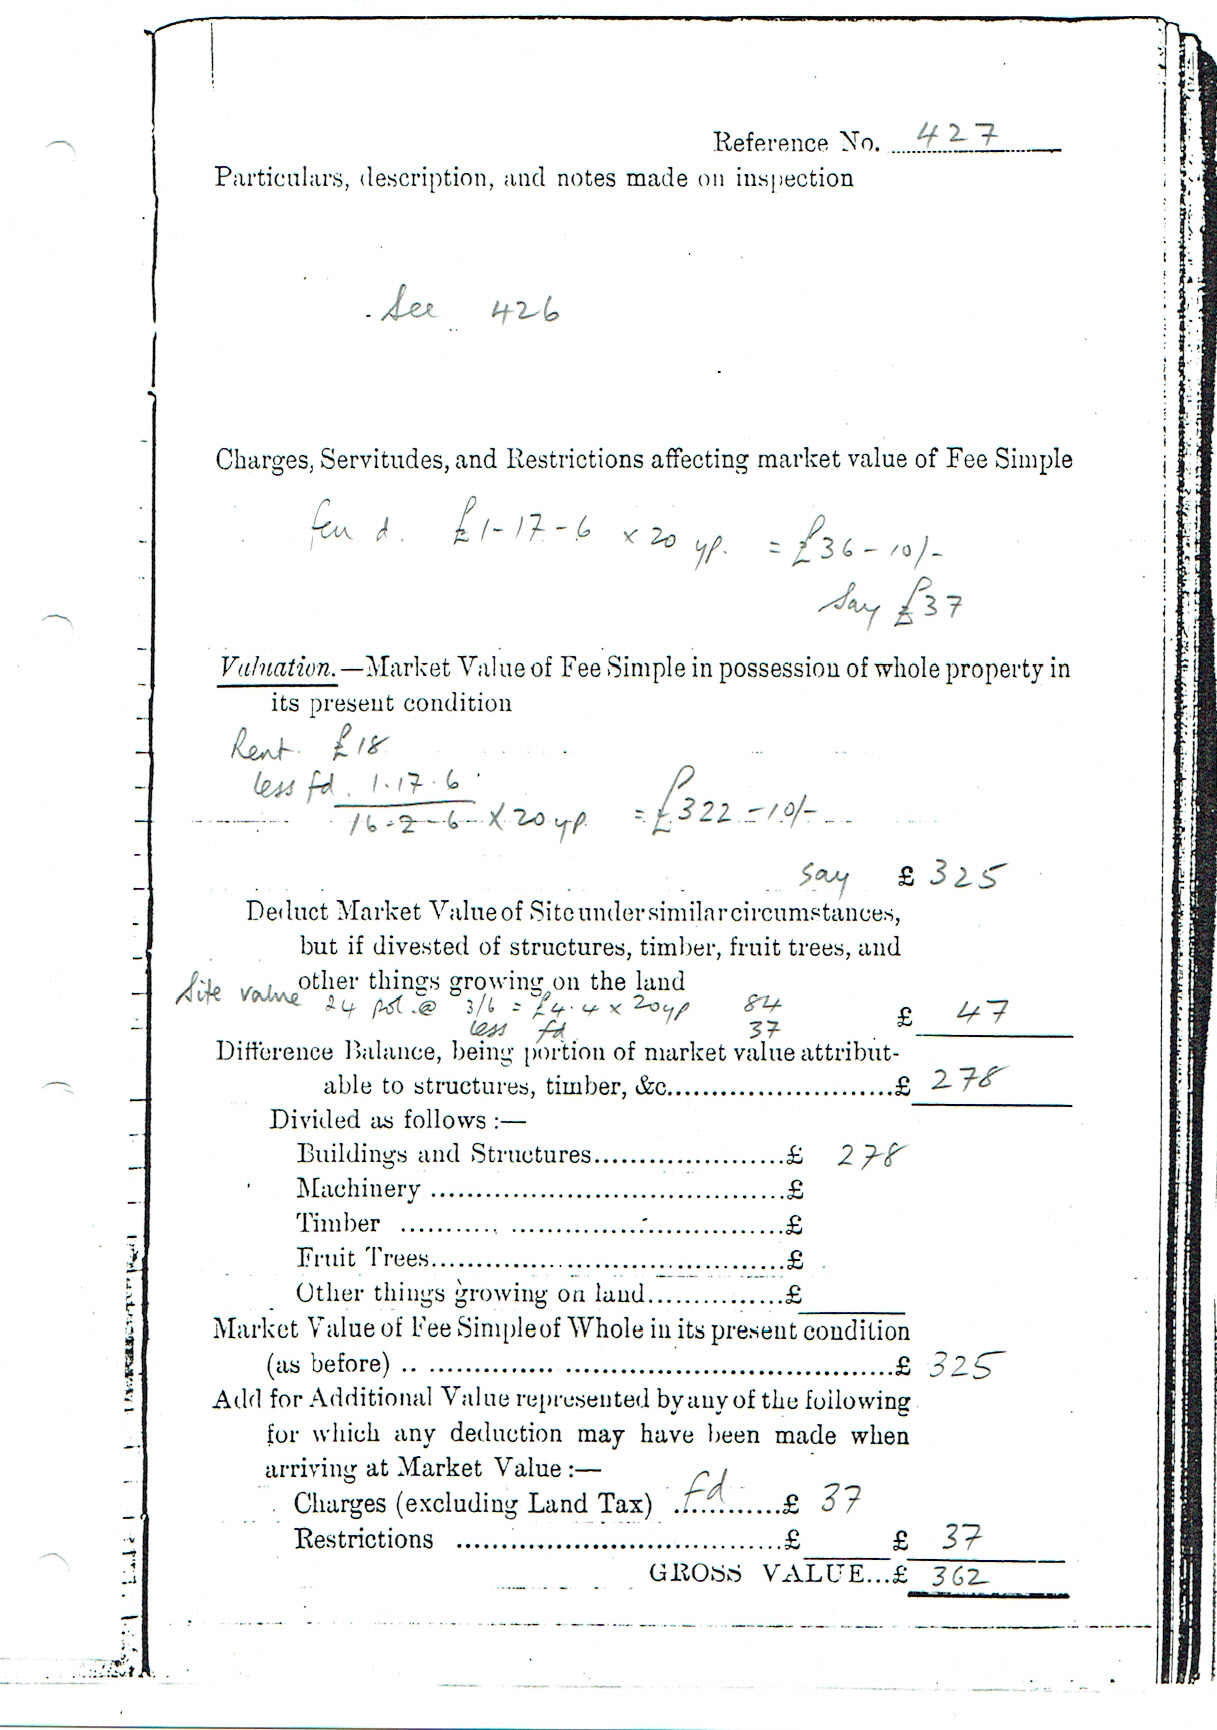 Reference No. 427
Particulars, description, and notes made on inspection
See 426
Charges, Servitudes, and Restrictions affecting market value of Fee Simple
feu d. £1-17-6 x 20 yp. = £36-10/-
Say £37
Valuation.—Market Value of Fee Simple in possession of whole property in
its present condition
Rent £18
less fd. 1.17.6
16-2-6 x 20 yp = £322-10/-
say £ 325
Deduct Market Value of Site under similar circumstances,
but if divested of structures, timber, fruit trees, and
other things growing on the land
Site value 24 pol. @ 3/6 = £4.4 x 20yp 84 £ 47
less fd 37
Difference Balance, being portion of market value attribut-
able to structures, timber, &c..........................£ 278
Divided as follows :—
Buildings and Structures......................£ 278
Machinery ......................................£
Timber ......................................£
Fruit Trees......................................£
Other things growing on land...............£
Market Value of Fee Simple of Whole in its present condition
(as before) .. ................................................£ 325
Add for Additional Value represented by any of the following
for which any deduction may have been made when
arriving at Market Value :—
Charges (excluding Land Tax) fd ...........£ 37
Restrictions ...................................£ £ 37
GROSS VALUE...£ 362